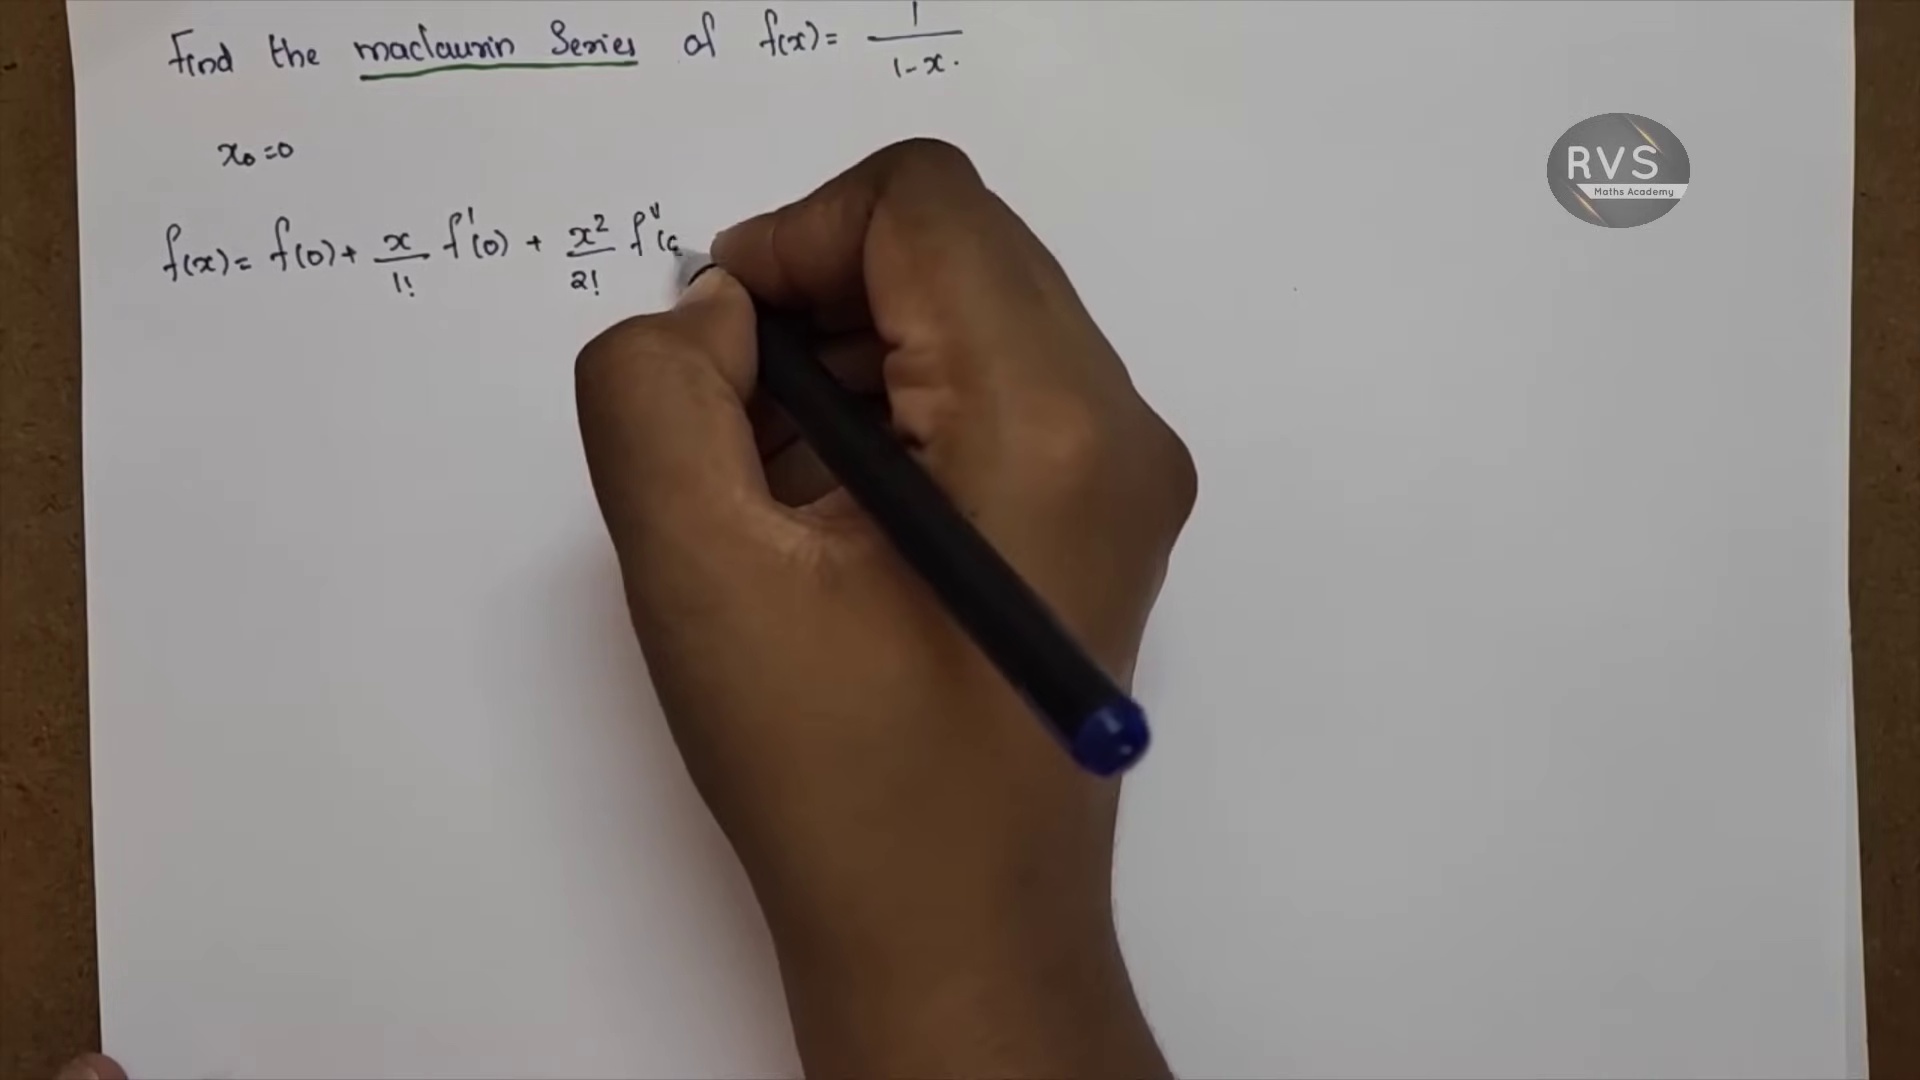 Find the maclaurin Series of f(x) = 1/(1-x).
x₀=0
f(x) = f(0) + x/1! f'(0) + x²/2! f''(
RVS
Maths Academy